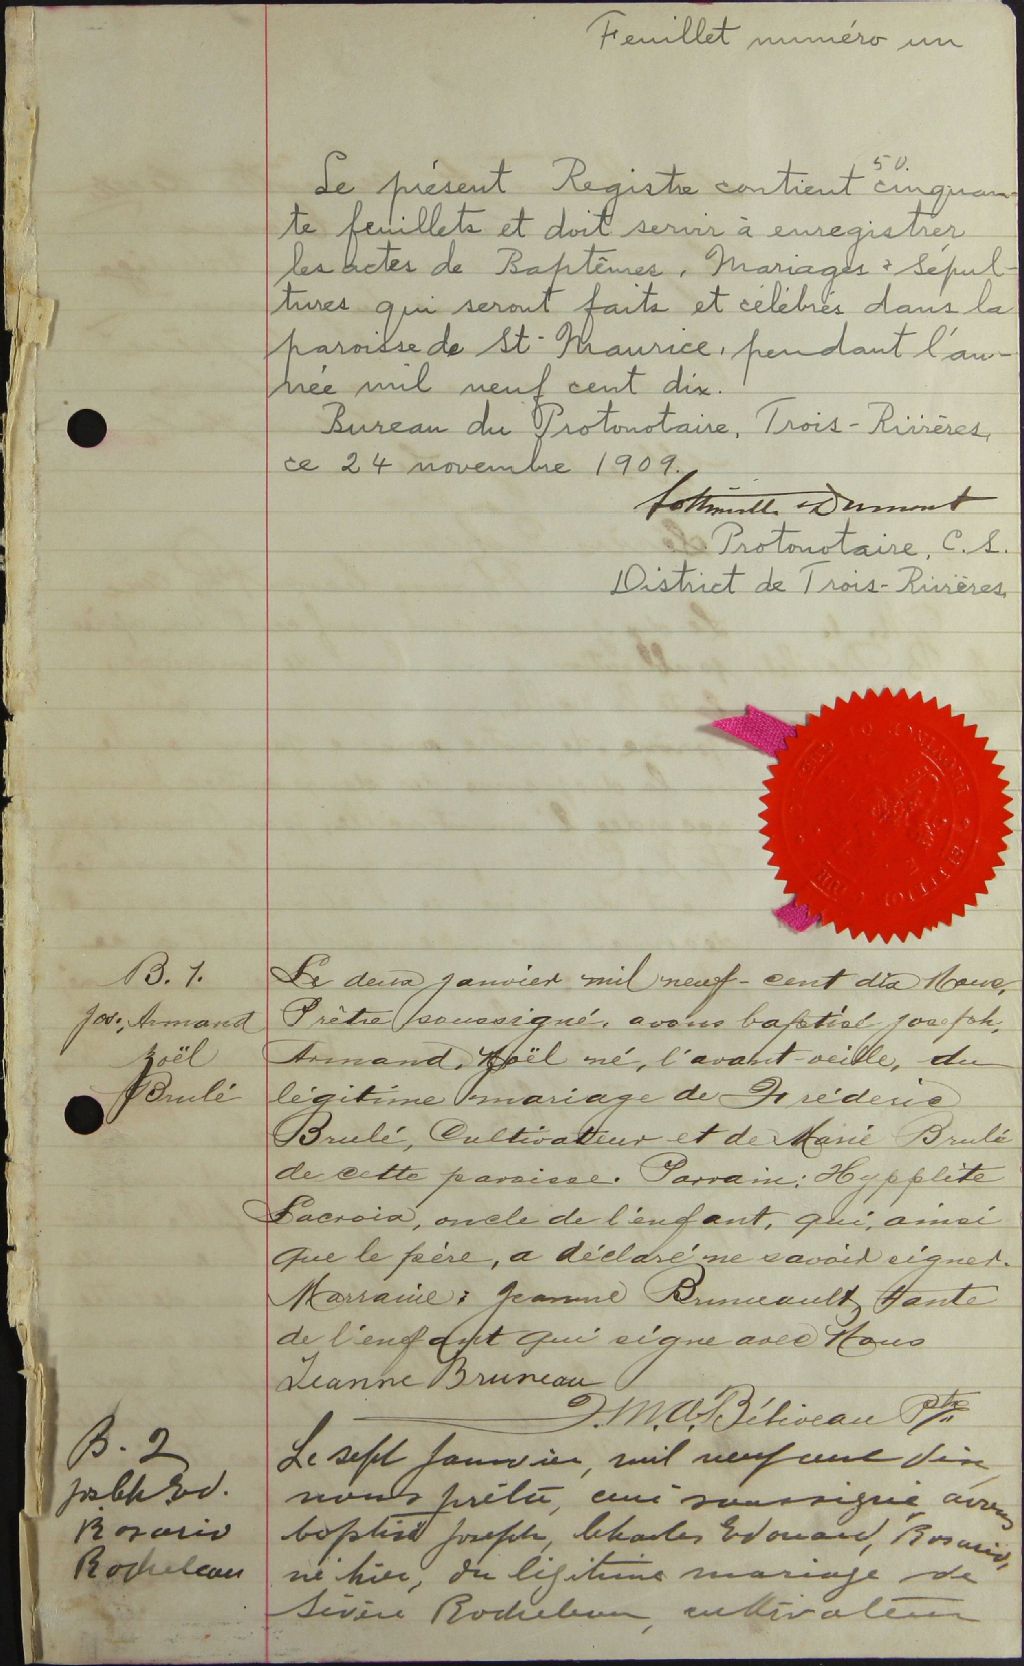 Feuillet numéro un
50.
Le présent Registre contient cinquan-
te feuillets et doit servir à enregistrer
les actes de Baptêmes, Mariages & Sépul-
tures qui seront faits et célébrés dans la
paroisse de St-Maurice, pendant l'an-
née mil neuf cent dix.
Bureau du Protonotaire, Trois-Rivières,
ce 24 novembre 1909.
Dumont
Protonotaire, C. S.
District de Trois-Rivières
B. 1.
Jos. Armand
Noël
Brulé
Le deux janvier mil neuf-cent dix Nous,
Prêtre soussigné, avons baptisé Joseph,
Armand, Noël né, l'avant-veille, du
légitime mariage de Frédéric
Brulé, Cultivateur et de Marie Brulé
de cette paroisse. Parrain: Hypplite
Lacroix, oncle de l'enfant, qui, ainsi
que le père, a déclaré ne savoir signer.
Marraine: Jeanne Bruneault, tante
de l'enfant qui signe avec Nous
Jeanne Bruneau
Béliveau Ptre
B. 2
Joseph Ed.
Rosario
Rocheleau
Le sept Janvier, mil neuf cent dix,
nous prêtre, curé soussigné, avons
baptisé Joseph, Charles Edouard, Rosario,
né hier, du légitime mariage de
Sévère Rocheleau, cultivateur